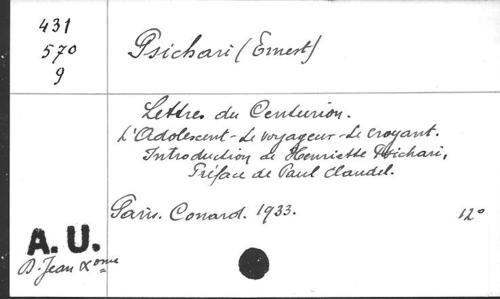 431
570
9
Psichari (Ernest)
Lettres du Centurion.
L'Adolescent - Le voyageur - Le croyant.
Introduction de Henriette Psichari,
Préface de Paul Claudel.
Paris. Conard. 1933. 12°
A. U.
D. Jean